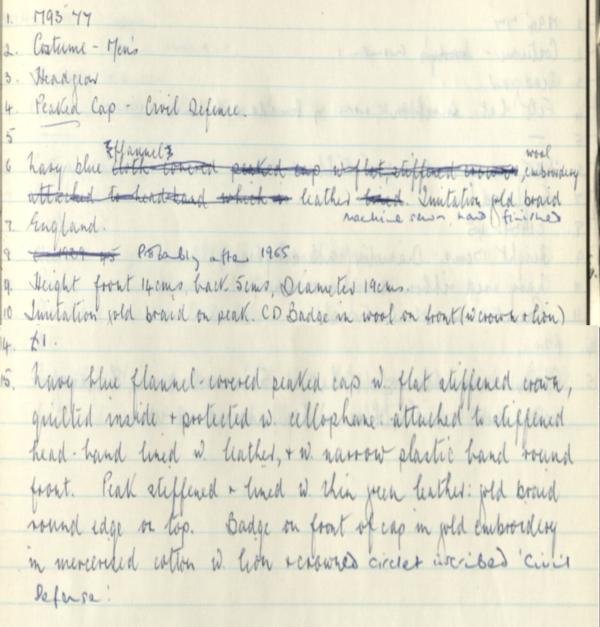 1. M93 '77
2. Costume - Men's
3. Headgear
4. Peaked Cap - Civil Defence.
5
{flannel} wool
6 Navy blue cloth-covered peaked cap w flat stiffened crown embroidery
attached to head-band which is leather lined. Imitation gold braid
machine sewn, hand finished
7 England.
8 Probably after 1965
9. Height front 14cms, back 5cms, Diameter 19cms.
10 Imitation gold braid on peak. CD Badge in wool on front (w crown + lion)
14. £1.
15. Navy blue flannel-covered peaked cap w. flat stiffened crown,
quilted inside + protected w. cellophane attached to stiffened
head-band lined w. leather, + w. narrow plastic band round
front. Peak stiffened + lined w thin green leather: gold braid
round edge on top. Badge on front of cap in gold embroidery
in mercerised cotton w. lion + crowned circlet inscribed 'Civil
Defense'.